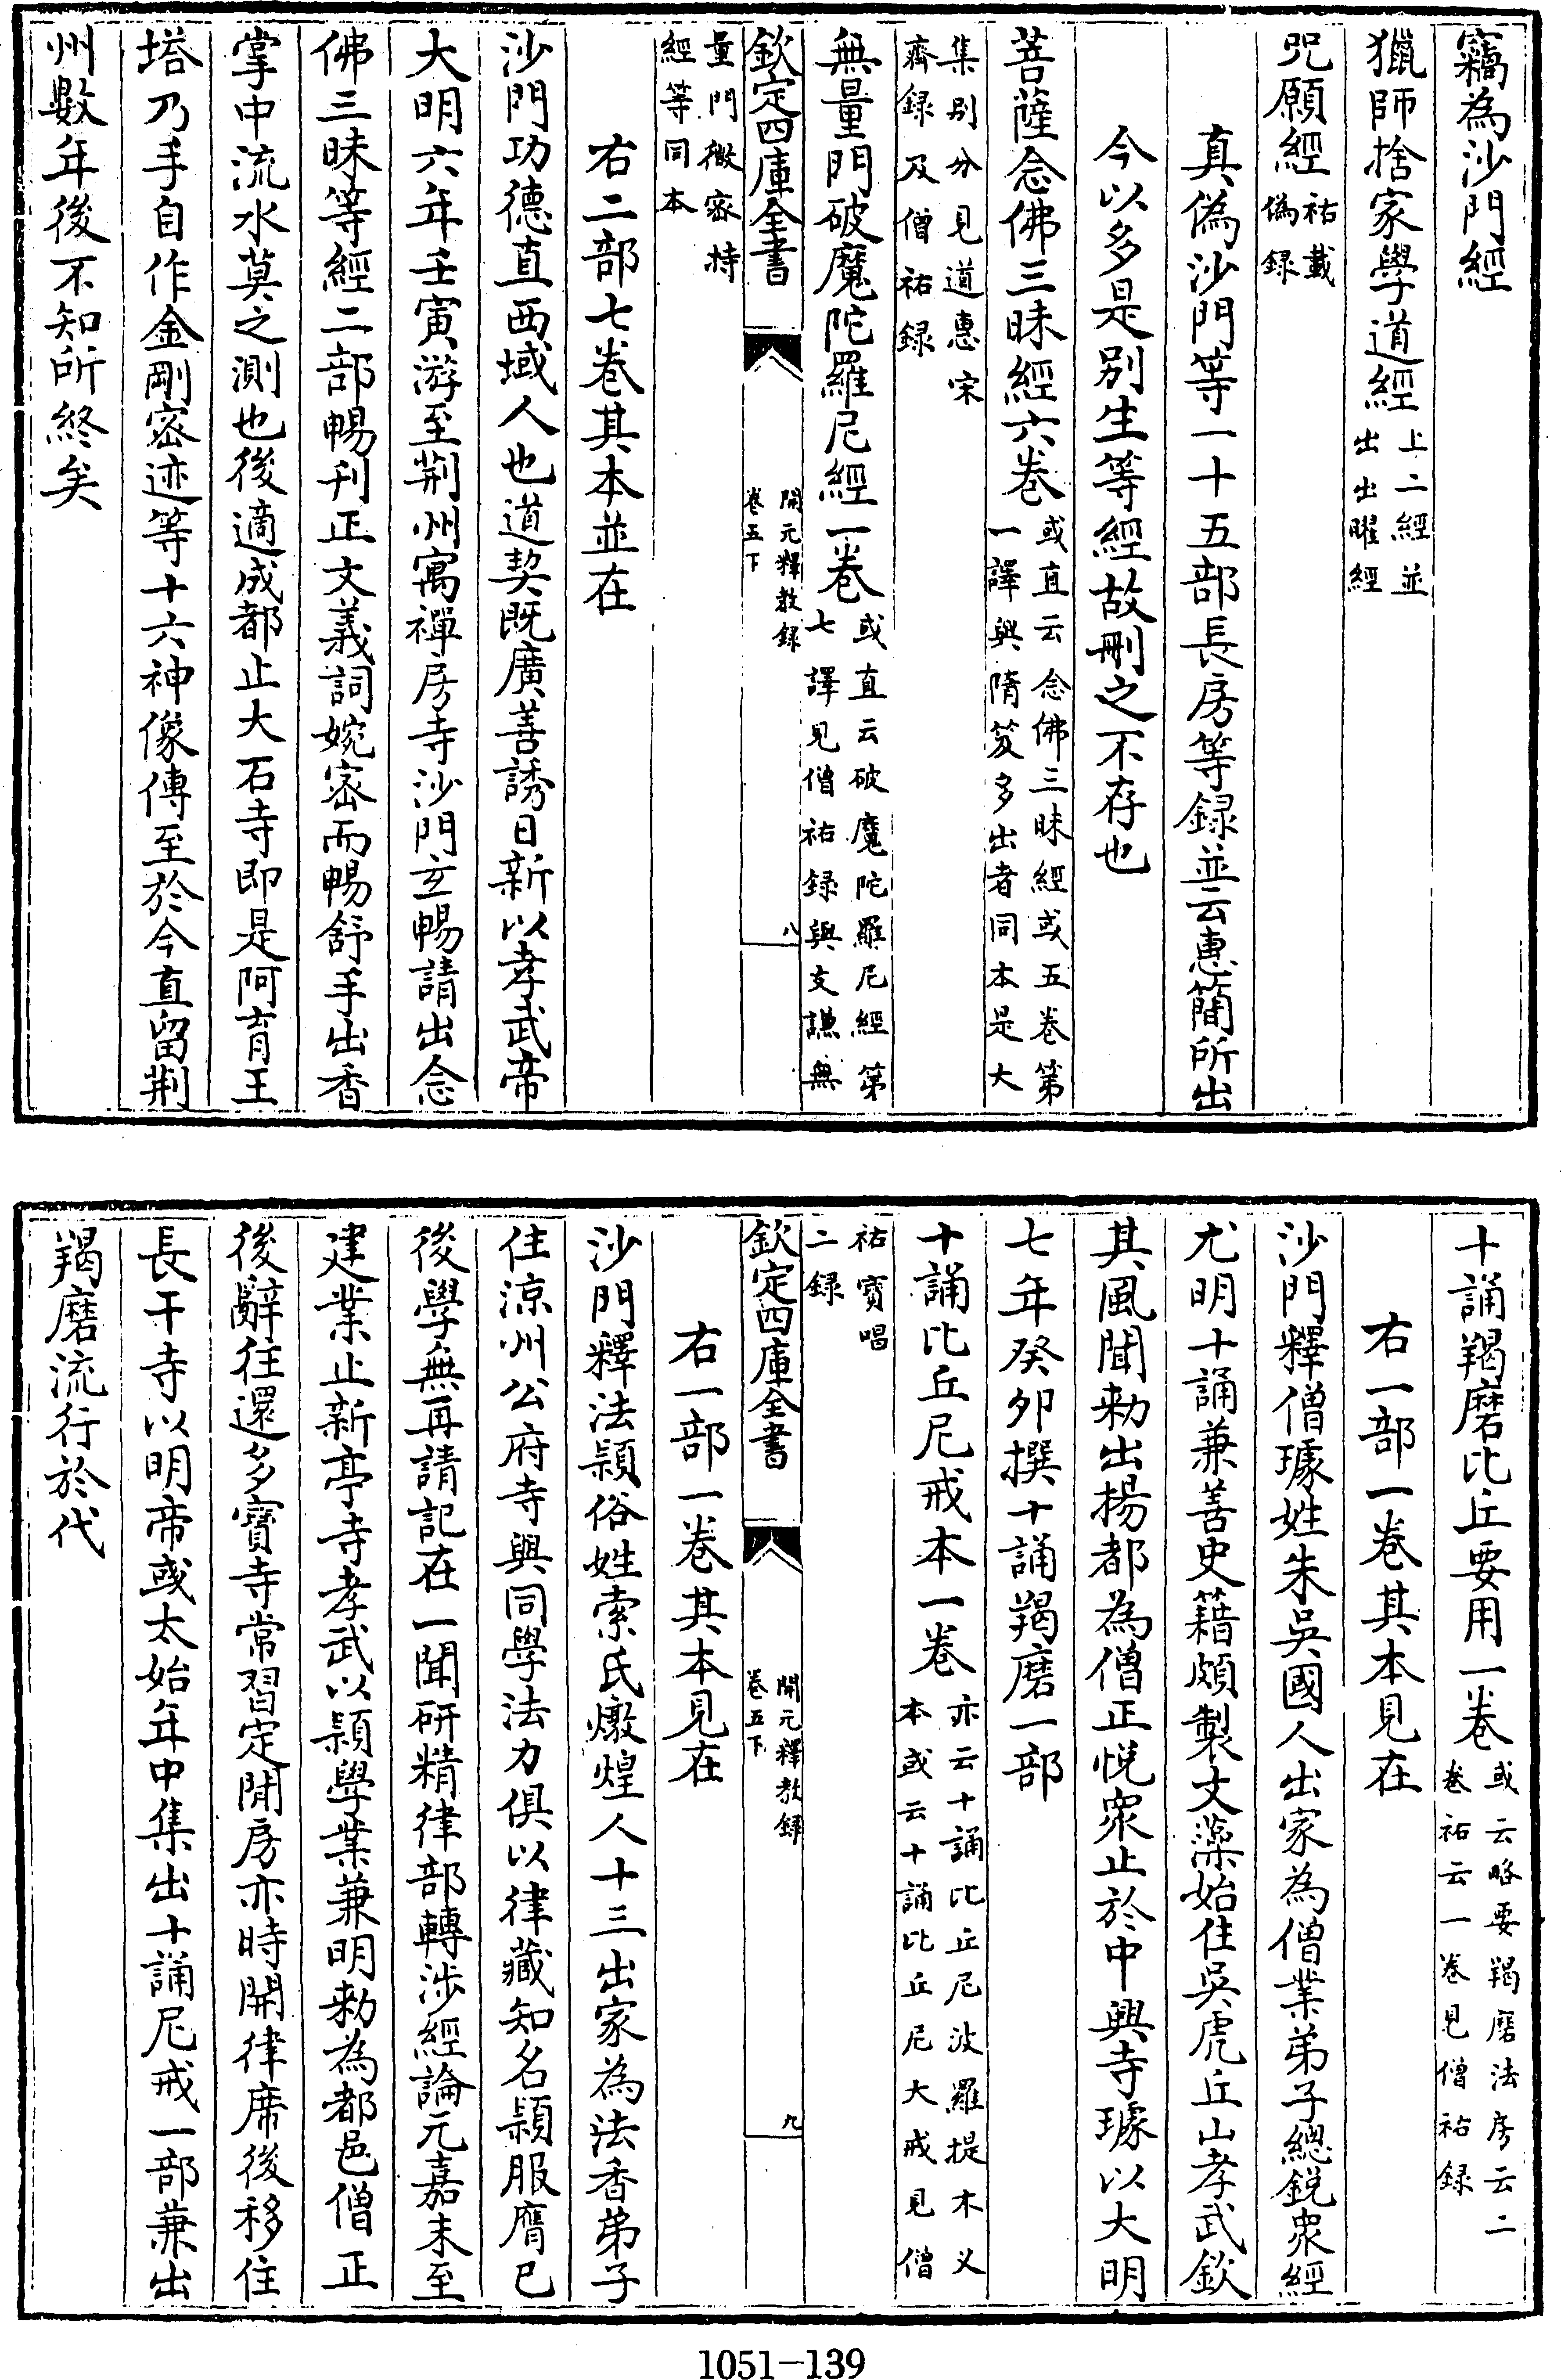 竊為沙門經
獵師捨家學道經上二經並出出曜經
咒願經祐載偽錄
真偽沙門等一十五部長房等録並云惠簡所出
今以多是别生等經故刪之不存也
菩薩念佛三昧經六卷或直云念佛三昧經或五卷第一譯與隋笈多出者同本是大
集别分見道惠宋齊録及僧祐録
無量門破魔陀羅尼經一卷或直云破魔陀羅尼經第七譯見僧祐録與支謙無
欽定四庫全書 開元釋教録卷五下 八
量門微密持經等同本
右二部七卷其本並在
沙門功德直西域人也道契既廣善誘日新以孝武帝
大明六年壬寅游至荆州寓禪房寺沙門玄暢請出念
佛三昧等經二部暢刊正文義詞婉密而暢舒手出香
掌中流水莫之測也後適成都止大石寺即是阿育王
塔乃手自作金剛密迹等十六神像傳至於今直留荆
州數年後不知所終矣
十誦羯磨比丘要用一卷或云略要羯磨法房云二卷祐云一卷見僧祐録
右一部一卷其本見在
沙門釋僧璩姓朱吳國人出家為僧業弟子總銳衆經
尤明十誦兼善史籍頗製文藻始住吳虎丘山孝武欽
其風聞勅出揚都為僧正悅衆止於中興寺璩以大明
七年癸卯撰十誦羯磨一部
十誦比丘尼戒本一卷亦云十誦比丘尼波羅提木义本或云十誦比丘尼大戒見僧
祐寳唱二録
欽定四庫全書 開元釋教録卷五下 九
右一部一卷其本見在
沙門釋法頴俗姓索氏燉煌人十三出家為法香弟子
住涼州公府寺與同學法力俱以律藏知名頴服膺已
後學無再請記在一聞研精律部轉涉經論元嘉末至
建業止新亭寺孝武以頴學業兼明勅為都邑僧正
後辭往還多寳寺常習定閒房亦時開律席後移住
長干寺以明帝或太始年中集出十誦尼戒一部兼出
羯磨流行於代
1051-139